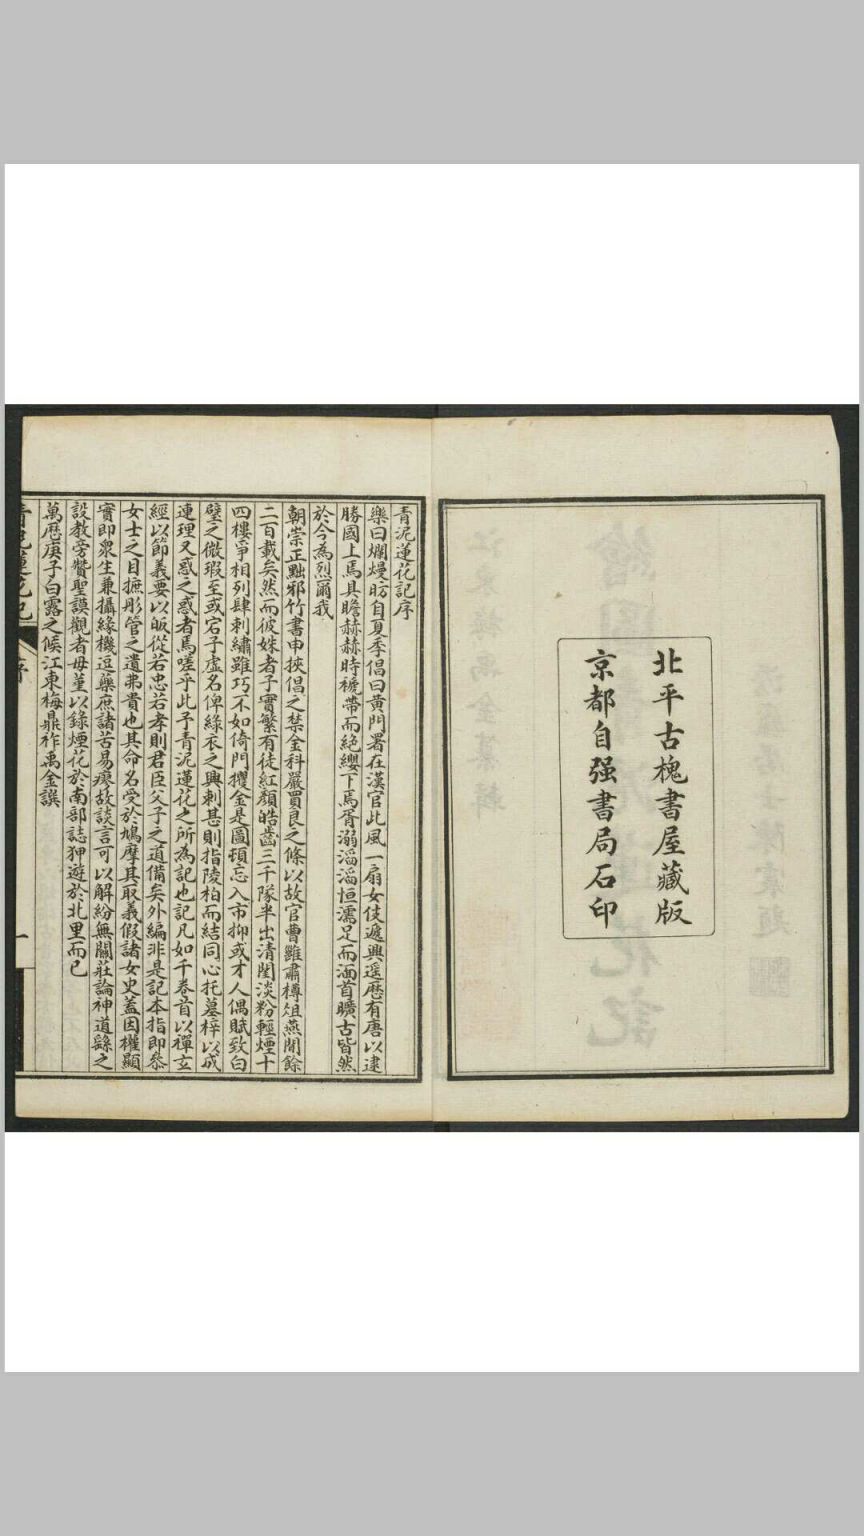 北平古槐書屋藏版
京都自强書局石印
青泥蓮花記序
樂曰爛熳昉自夏季倡曰黃門署在漢官此風一扇女伎遞興遥歷有唐以逮
勝國上焉具瞻赫赫時褫帶而絶纓下焉胥溺滔滔恒濡足而湎首曠古皆然
於今為烈爾我
朝崇正黜邪竹書申挾倡之禁金科嚴買良之條以故官曹雖肅樽俎燕閒餘
二百載矣然而彼姝者子實繁有徒紅顏皓齒三千隊半出清閨淡粉輕煙十
四樓爭相列肆刺繡雖巧不如倚門攫金是圖頓忘入市抑或才人偶賦致白
璧之微瑕至或宕子虛名俾綠衣之興刺甚則指陵柏而結同心托墓梓以成
連理又惑之惑者焉嗟乎此予青泥蓮花之所為記也記凡如干卷首以禪玄
經以節義要以皈從若忠若孝則君臣父子之道備矣外編非是記本指即叅
女士之目摭彤管之遺弗貴也其命名受於鳩摩其取義假諸女史蓋因權顯
實即衆生兼攝緣機逗藥庶諸苦易瘳故談言可以解紛無關莊論神道繇之
設教旁贊聖謨觀者毋堇以錄煙花於南部誌狎遊於北里而已
萬歷庚子白露之候江東梅鼎祚禹金譔
青泥蓮花記
序
一